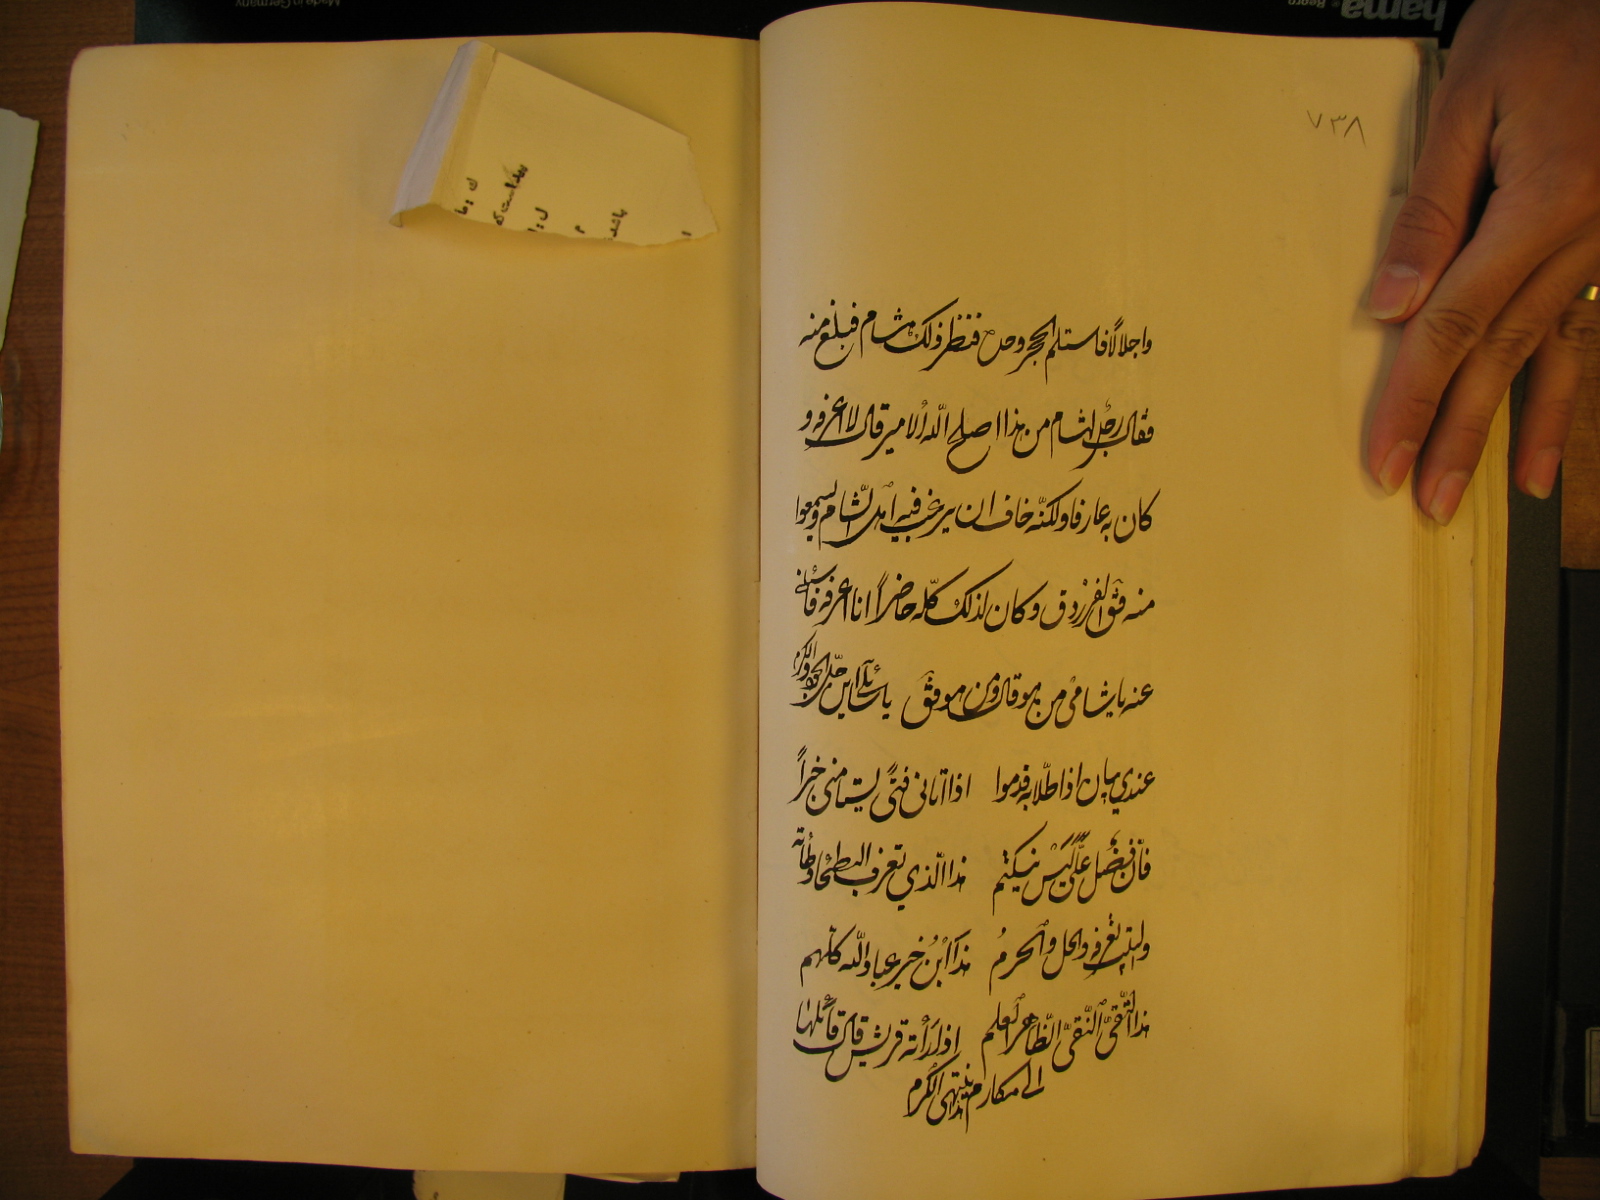 hama
Made in Germany
٧٣٨
واجلالاً فاستلم الحجر وحده فنظر ذلك هشام فبلغ منه
فقال رجل لهشام من هذا اصلح الله الامير قال لا اعرفه و
كان به عارفا ولكنّه خاف ان يرغب فيه اهل الشّام ويسمعوا
منه فقال الفرزدق وكان لذلك كلّه حاضراً انا اعرفه فاسئلني
عنه يا شامي من هو قال ومن هو فقال يا سائلي اين حلّ الجود والكرم
عندي بيان اذا طلّابه قدموا اذا اتاني فتىً منّي خبراً
فانّ فضل عليٍّ ليس ينكتم هذا الّذي تعرف البطحاء وطأته
والبيت يعرفه والحل والحرمُ هذا ابنُ خير عباد اللّه كلّهم
هذا التّقيّ النّقيّ الطّاهر العلم اذا رأته قريش قال قائلها
الى مكارم هذا ينتهي الكرم